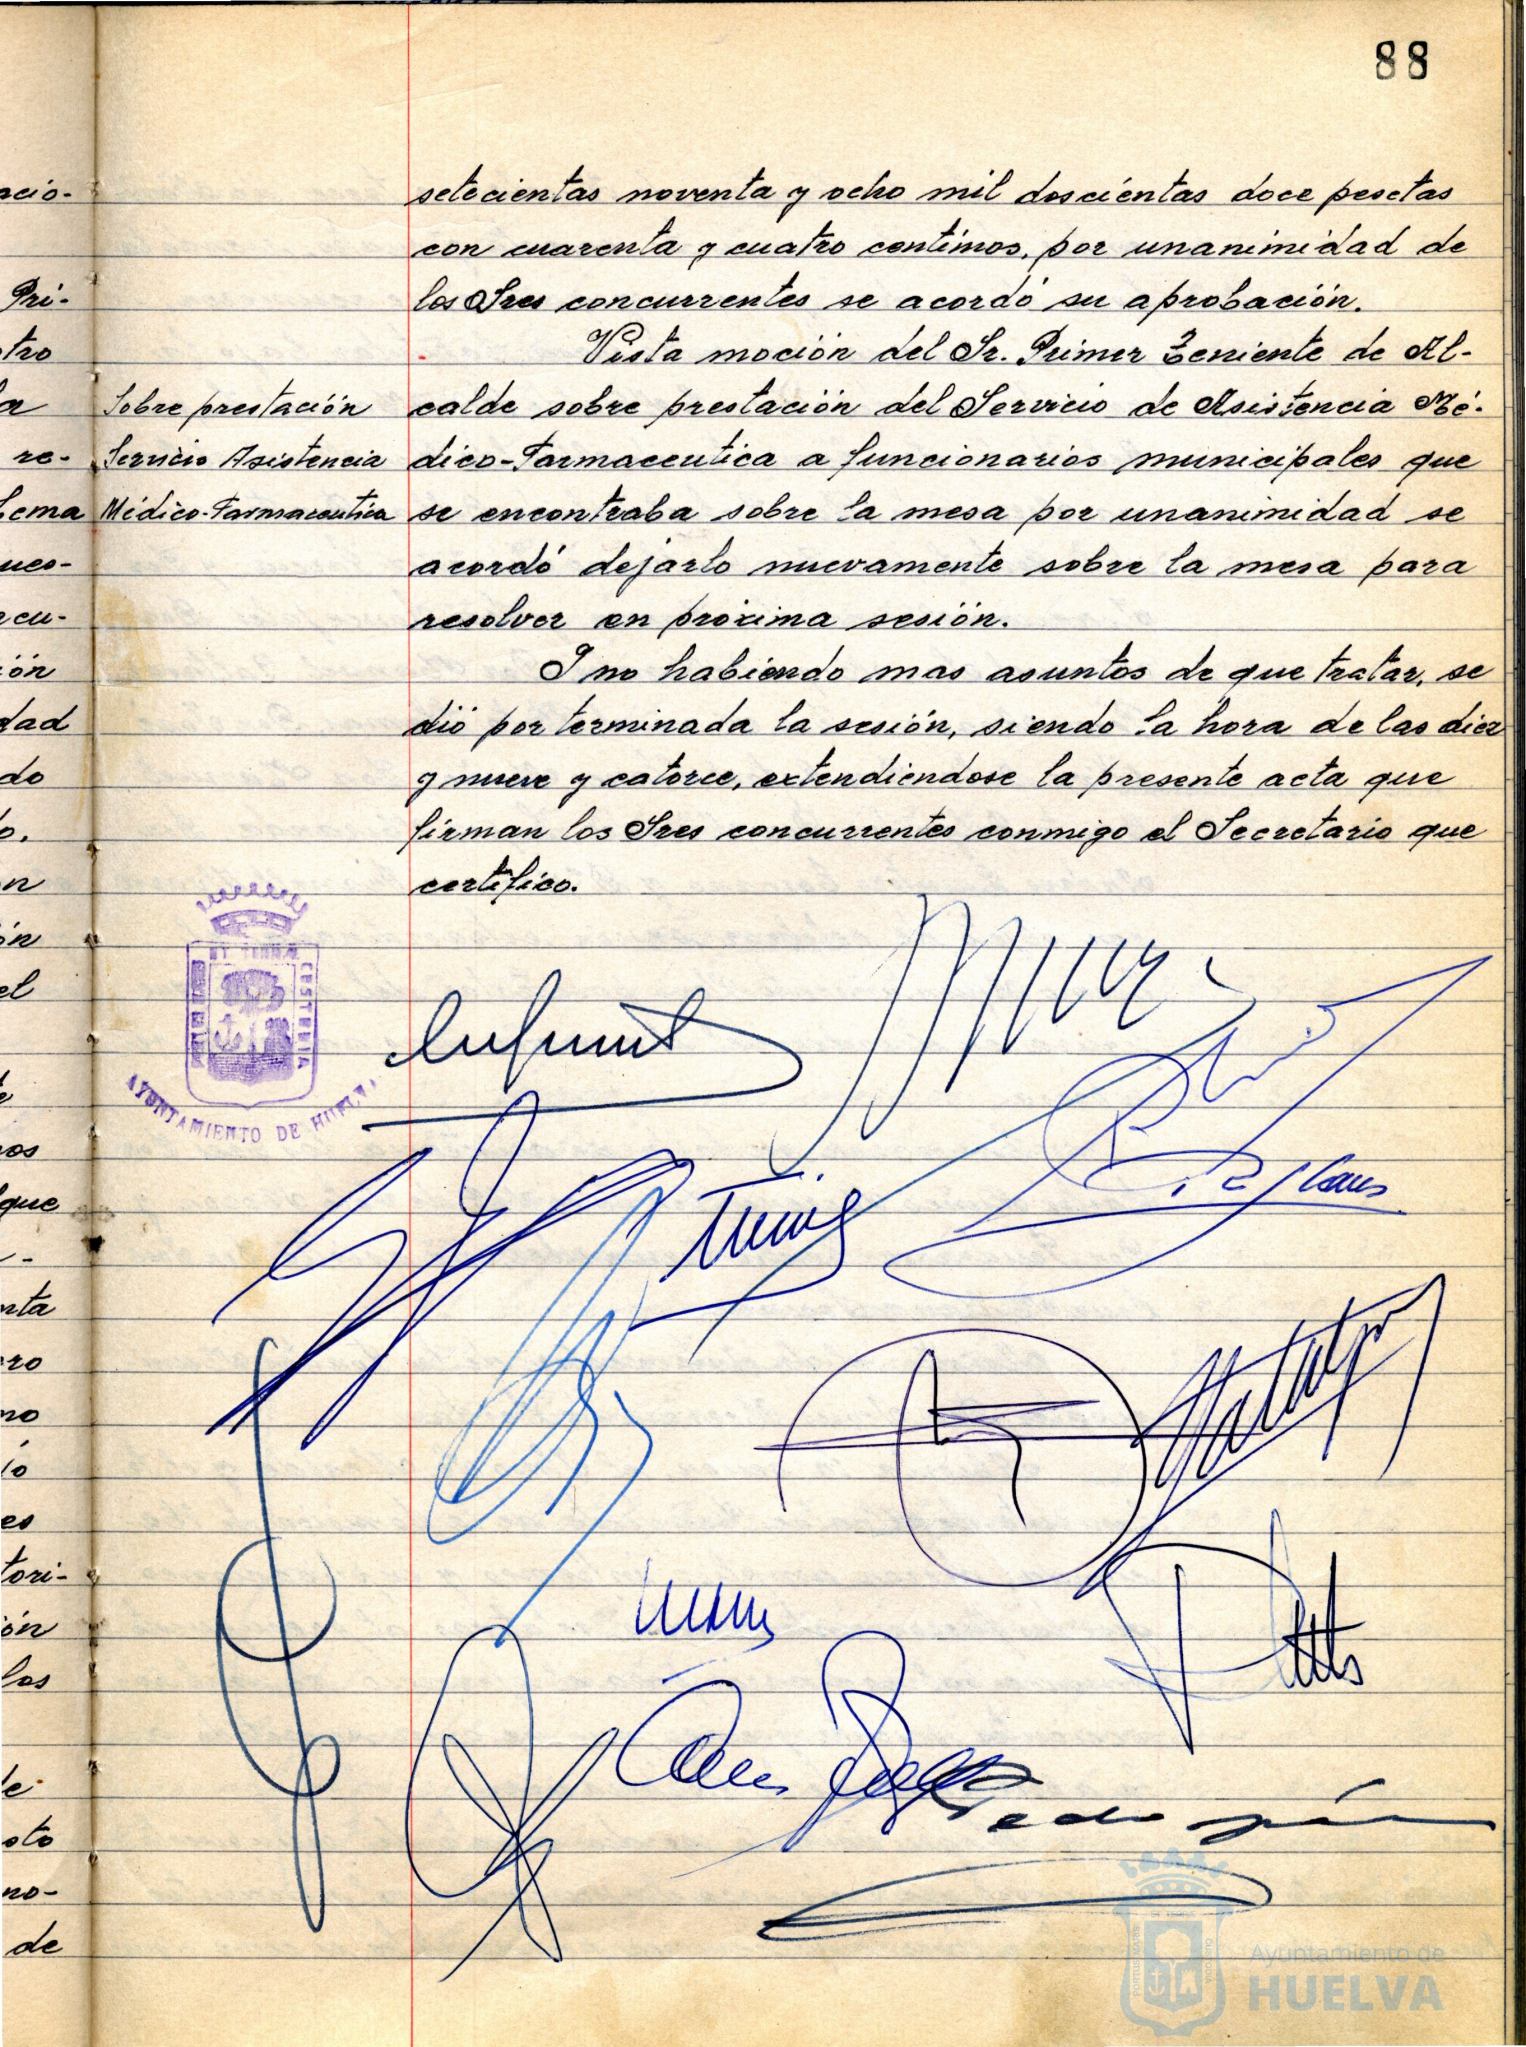 88
setecientas noventa y ocho mil doscientas doce pesetas
con cuarenta y cuatro centimos, por unanimidad de
los Sres concurrentes se acordó su aprobación.
Vista moción del Sr. Primer Teniente de Al-
calde sobre prestación del Servicio de Asistencia Mé-
dico-Farmaceutica a funcionarios municipales que
se encontraba sobre la mesa por unanimidad se
acordó dejarlo nuevamente sobre la mesa para
resolver en próxima sesión.
Y no habiendo mas asuntos de que tratar, se
dió por terminada la sesión, siendo la hora de las diez
y nueve y catorce, extendiéndose la presente acta que
firman los Sres concurrentes conmigo el Secretario que
certifico.
Sobre prestación
Servicio Asistencia
Médico-Farmaceutica
acio-
Pri-
otro
la
re-
ues-
cu-
ión
dad
do
el
que
de
AYUNTAMIENTO DE HUELVA
Ayuntamiento de
HUELVA